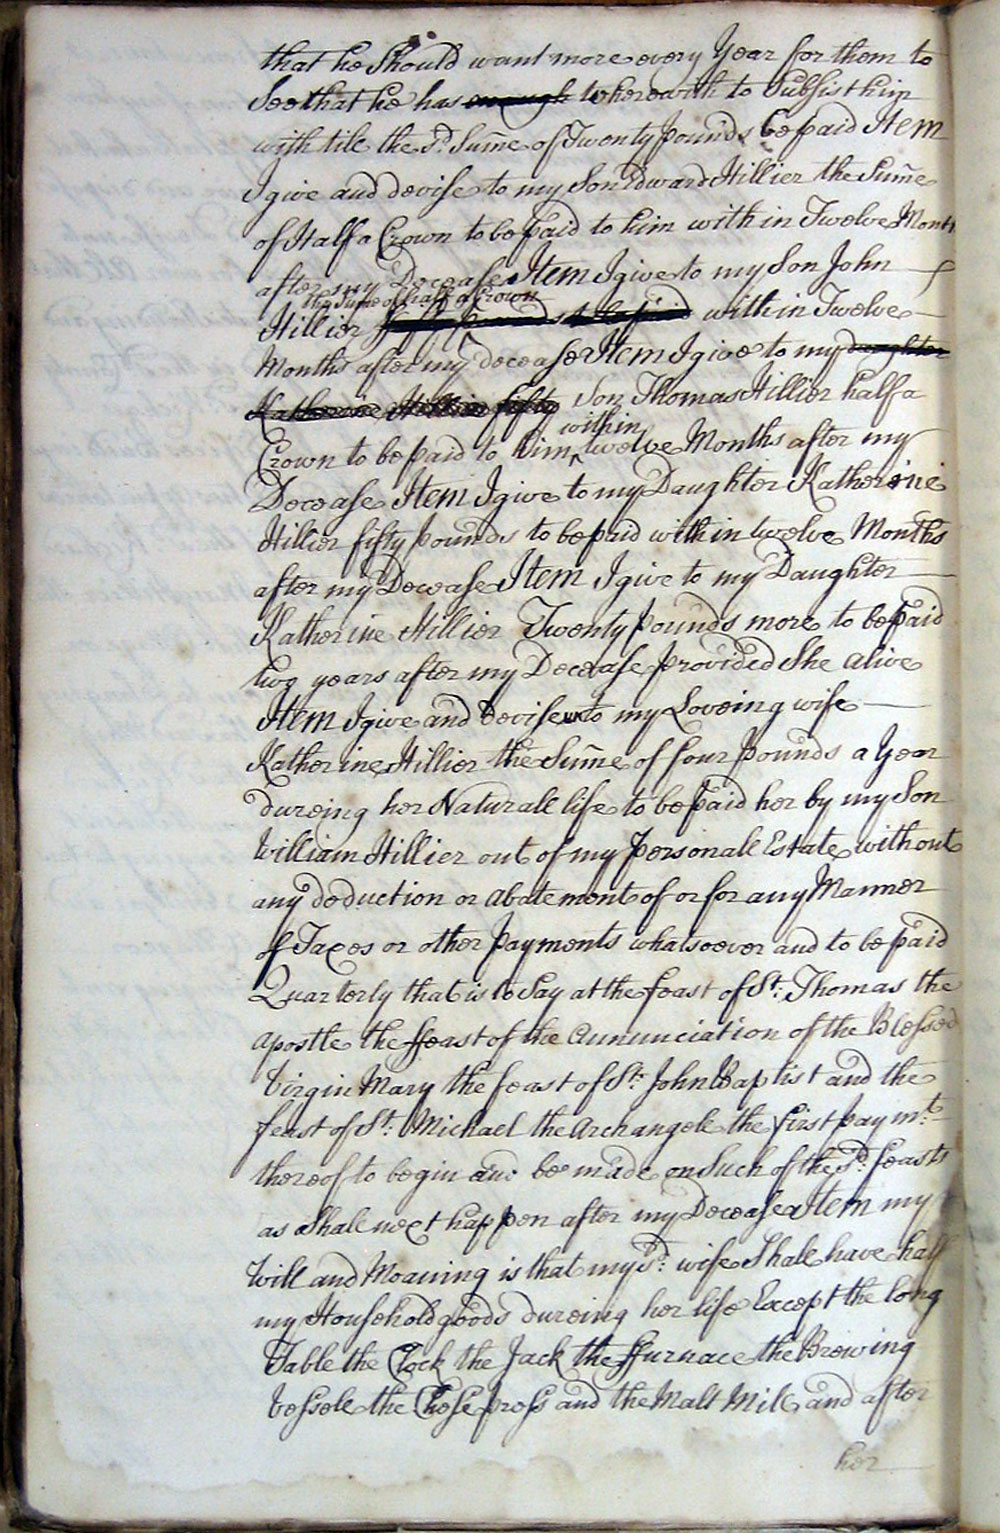 that he Should want more every Year for them to
See that he has enough wherewith to Subsist him
with till the Sd. Sume of Twenty pounds be paid Item
I give and devise to my Son Edward Hillier the Sume
of Half a Crown to be paid to him with in Twelve Month
after my Decease Item I give to my Son John
the Sume of half a Crown
Hillier fifty pounds to be paid with in Twelve
Months after my decease Item I give to my daughter
Katherine Hillier fifty Son Thomas Hillier half a
within
Crown to be paid to him twelve Months after my
Decease Item I give to my Daughter Katherine
Hillier fifty pounds to be paid with in twelve Months
after my Decease Item I give to my Daughter
Katherine Hillier Twenty pounds more to be paid
two years after my Decease provided She alive
Item I give and devise unto my Loveing wife
Katherine Hillier the Sume of four pounds a Year
dureing her Naturall life to be paid her by my Son
William Hillier out of my Personall Estate without
any deduction or abatement of or for any Manner
of Taxes or other Payments whatsoever and to be paid
Quarterly that is to Say at the feast of St: Thomas the
Apostle the ffeast of the Anunciation of the Blessed
Virgin Mary the feast of St: John Baptist and the
feast of St: Michael the Archangele the first paymt:
thereof to begin and be made on Such of the Sd: feasts
as Shall next happen after my Decease Item my
Will and Meaning is that my Sd: wife Shall have half
my Household goods dureing her life Except the long
Table the Clock the Jack the ffurnace the Brewing
Vessele the Chese press and the Malt Mill and after
her